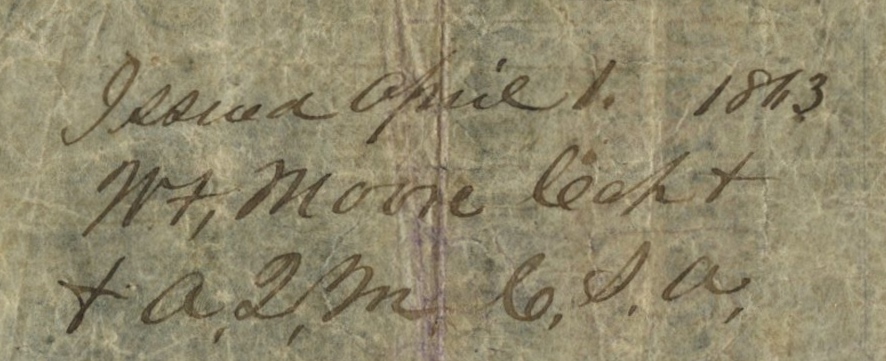 Issued April 1. 1863
Wt, Moore Capt
+ A, Q, M, C, S. A,